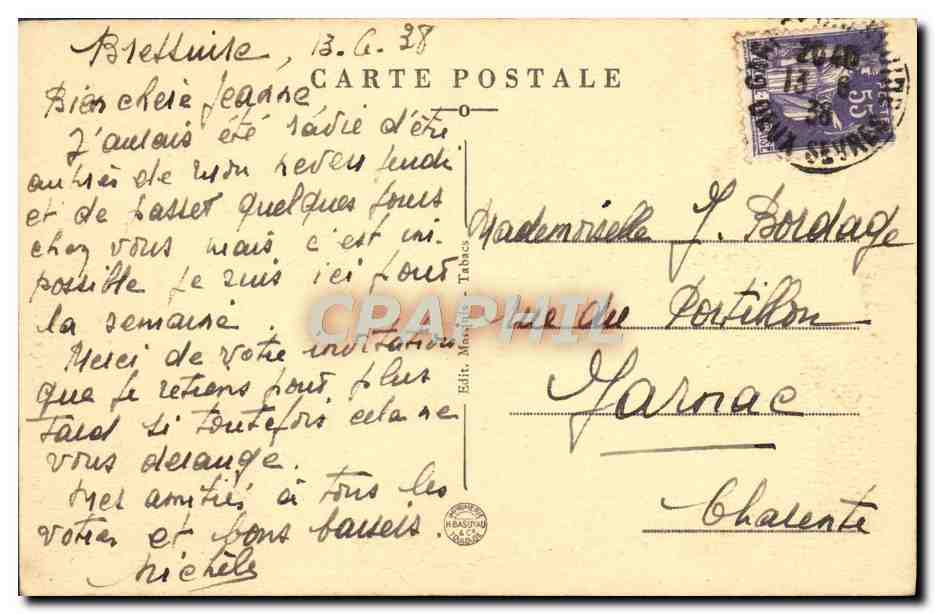 Bressuire, 13.6.38
CARTE POSTALE
Bien chère Jeanne,
J'aurais été ravie d'être
auprès de mon revers jeudi
et de passer quelques jours
chez vous mais c'est im-
possible je suis ici pour
la semaine.
Merci de votre invitation
que je retiens pour plus
tard si toutefois cela ne
vous dérange.
Mes amitiés à tous les
votres et bons baisers.
Michèle
Edit. - Tabacs
IMPRIMERIE
H. BASUYAU
& Cie
TOULOUSE
20 40
13 6
38
DEUX SEVRES
55
Mademoiselle J. Bordage
rue du Portillon
Jarnac
Charente
CPAPHIL